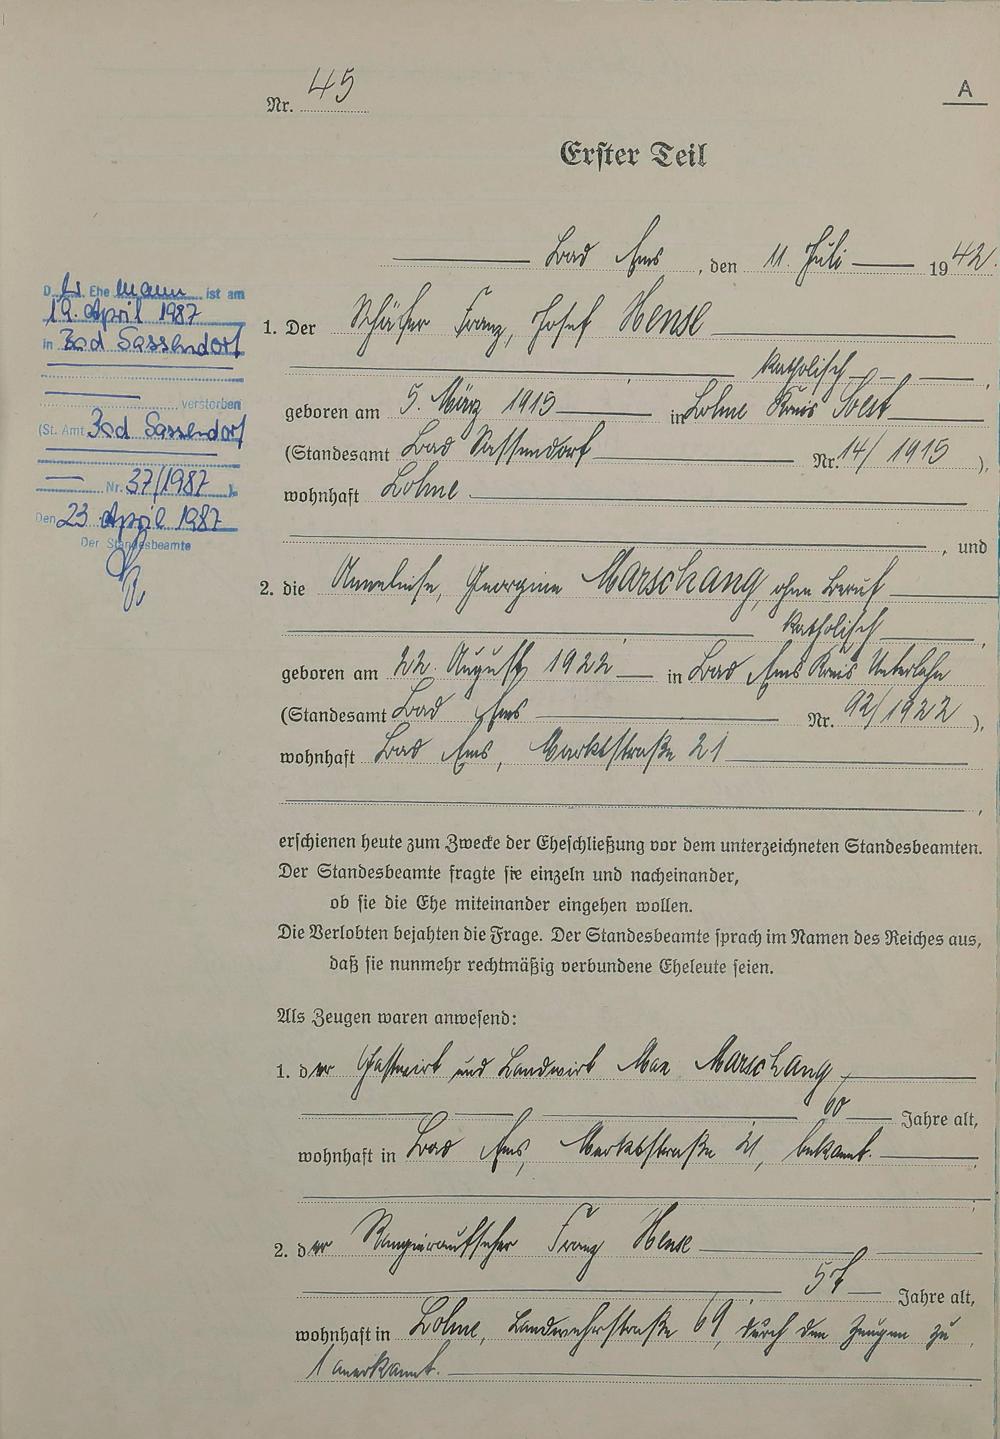 Nr. 45
A
Erster Teil
Bad Ems, den 11. Juli 1942.
Der Ehemann ist am
19. April 1987
in Bad Sassendorf
verstorben
(St. Amt Bad Sassendorf
Nr. 37/1987).
Den 23 April 1987
Der Standesbeamte
1. Der Schäfer Franz, Josef Hense
katholisch
geboren am 5. März 1915 in Lohne Kreis Soest
(Standesamt Bad Sassendorf Nr. 14/1915),
wohnhaft Lohne
, und
2. die Georgine Marschang, ohne Beruf
katholisch,
geboren am 22. August 1922 in Bad Ems Kreis Unterlahn
(Standesamt Bad Ems Nr. 92/1922),
wohnhaft Bad Ems, Marktstraße 21
,
erschienen heute zum Zwecke der Eheschließung vor dem unterzeichneten Standesbeamten.
Der Standesbeamte fragte sie einzeln und nacheinander,
ob sie die Ehe miteinander eingehen wollen.
Die Verlobten bejahten die Frage. Der Standesbeamte sprach im Namen des Reiches aus,
daß sie nunmehr rechtmäßig verbundene Eheleute seien.
Als Zeugen waren anwesend:
1. der Gastwirt und Landwirt Max Marschang,
60 Jahre alt,
wohnhaft in Bad Ems, Marktstraße 21, bekannt.
;
2. der Rangieraufseher Franz Hense
57 Jahre alt,
wohnhaft in Lohne, Landwehrstraße 69, durch den Zeugen zu
1 anerkannt.